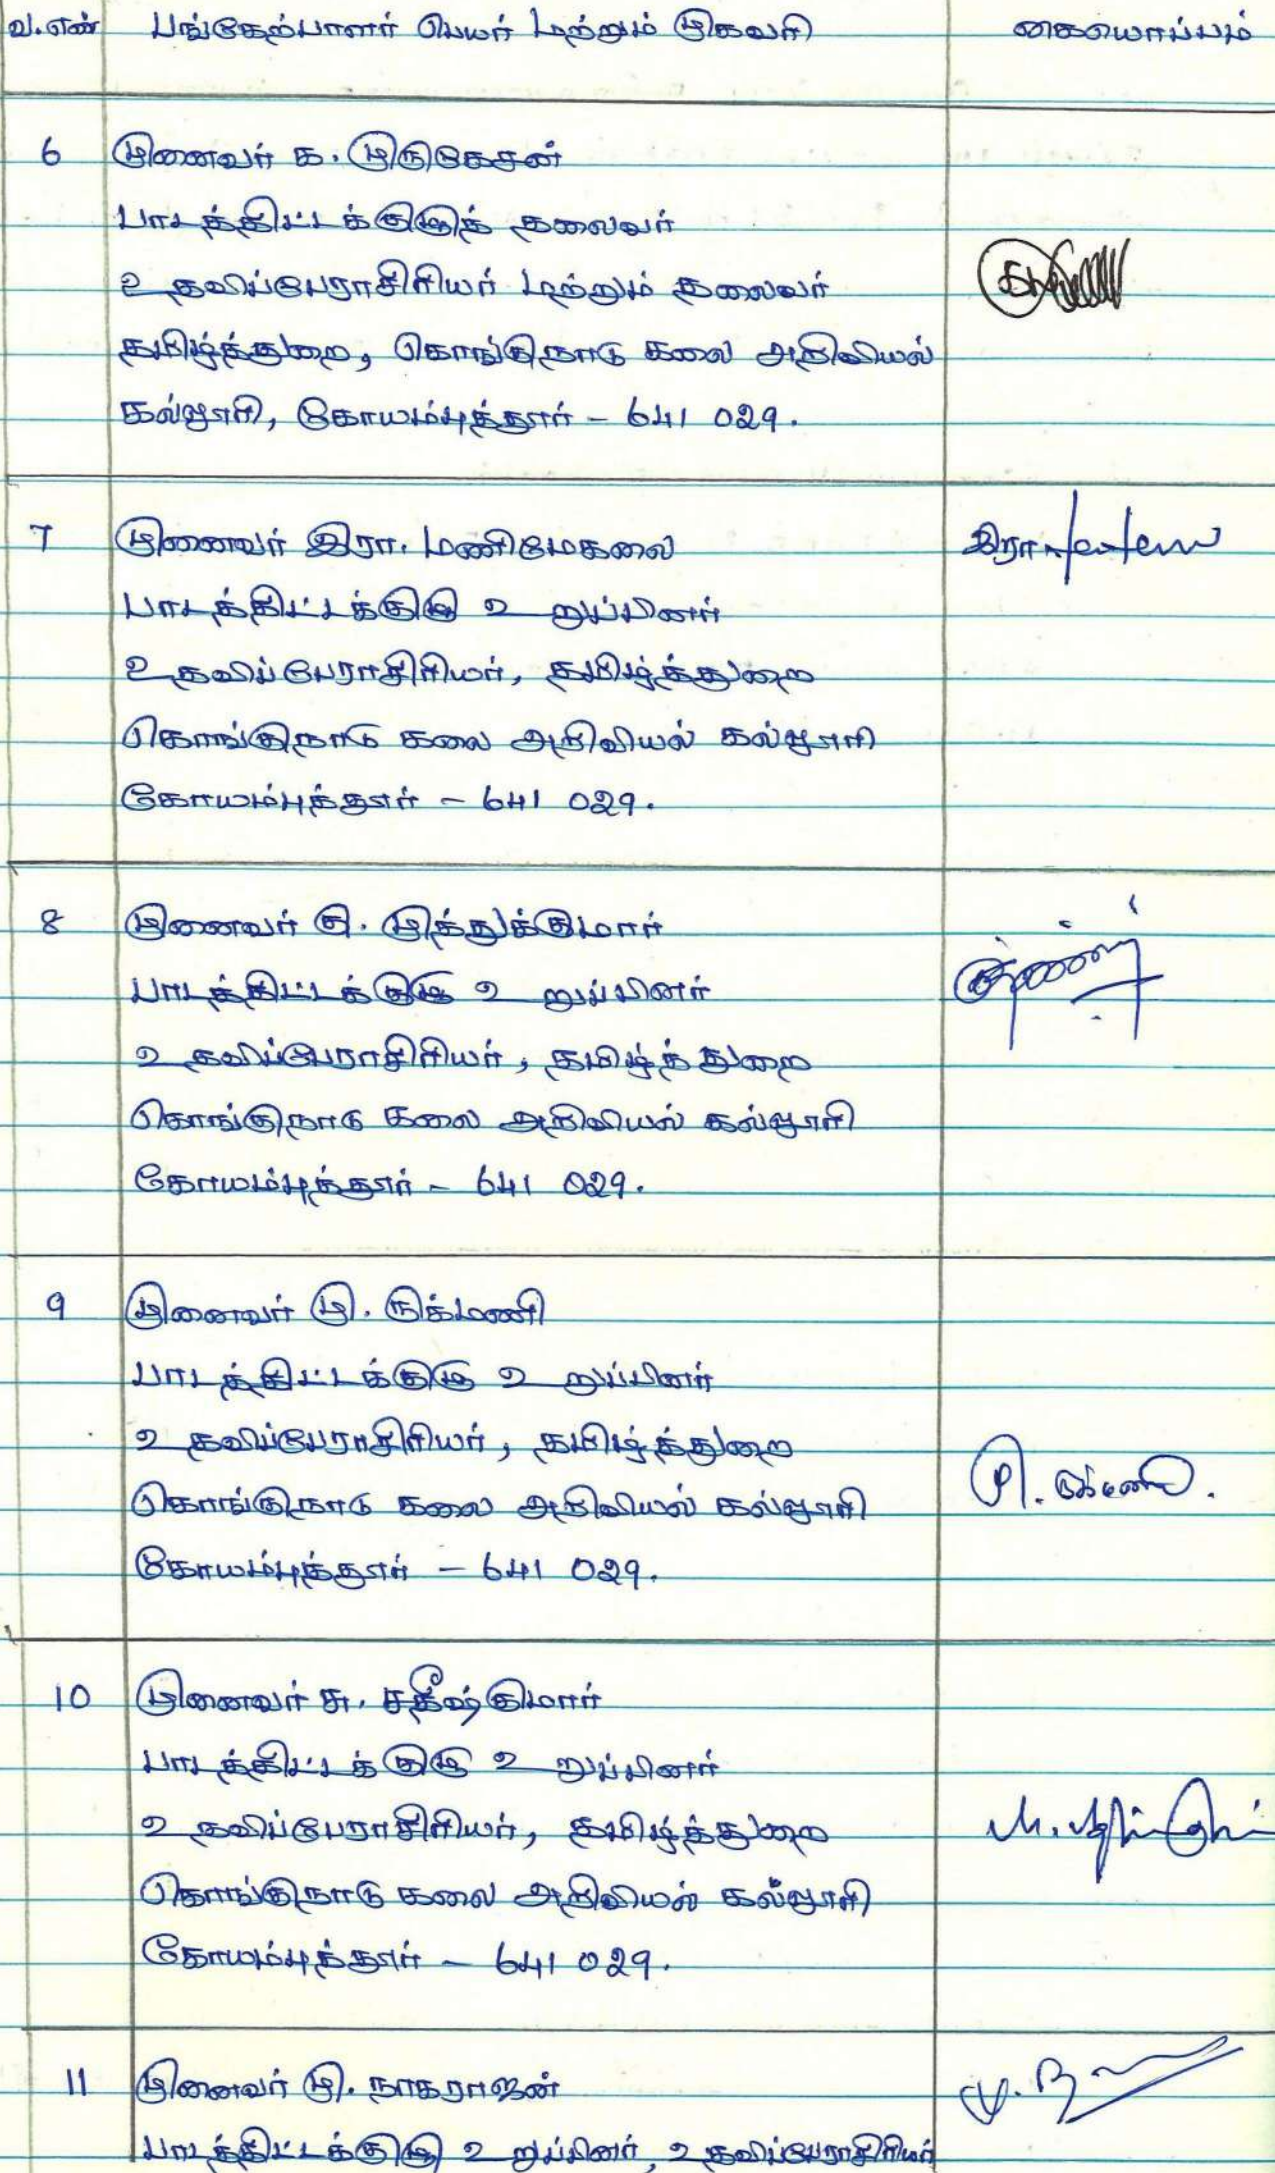 வ.எண் பங்கேற்பாளர் பெயர் மற்றும் முகவரி கையொப்பம்
6 முனைவர் க. முருகேசன்
பாடத்திட்டக்குழுத் தலைவர்
உதவிப்பேராசிரியர் மற்றும் தலைவர்
தமிழ்த்துறை, கொங்குநாடு கலை அறிவியல்
கல்லூரி, கோயம்புத்தூர் - 641 029.
7 முனைவர் இரா. மணிமேகலை
பாடத்திட்டக்குழு உறுப்பினர்
உதவிப்பேராசிரியர், தமிழ்த்துறை
கொங்குநாடு கலை அறிவியல் கல்லூரி
கோயம்புத்தூர் - 641 029.
8 முனைவர் கு. முத்துக்குமார்
பாடத்திட்டக்குழு உறுப்பினர்
உதவிப்பேராசிரியர், தமிழ்த்துறை
கொங்குநாடு கலை அறிவியல் கல்லூரி
கோயம்புத்தூர் - 641 029.
9 முனைவர் மு. ருக்மணி
பாடத்திட்டக்குழு உறுப்பினர்
உதவிப்பேராசிரியர், தமிழ்த்துறை
கொங்குநாடு கலை அறிவியல் கல்லூரி
கோயம்புத்தூர் - 641 029.
10 முனைவர் சு. சதீஷ்குமார்
பாடத்திட்டக்குழு உறுப்பினர்
உதவிப்பேராசிரியர், தமிழ்த்துறை
கொங்குநாடு கலை அறிவியல் கல்லூரி
கோயம்புத்தூர் - 641 029.
11 முனைவர் மு. நாகராஜன்
பாடத்திட்டக்குழு உறுப்பினர், உதவிப்பேராசிரியர்